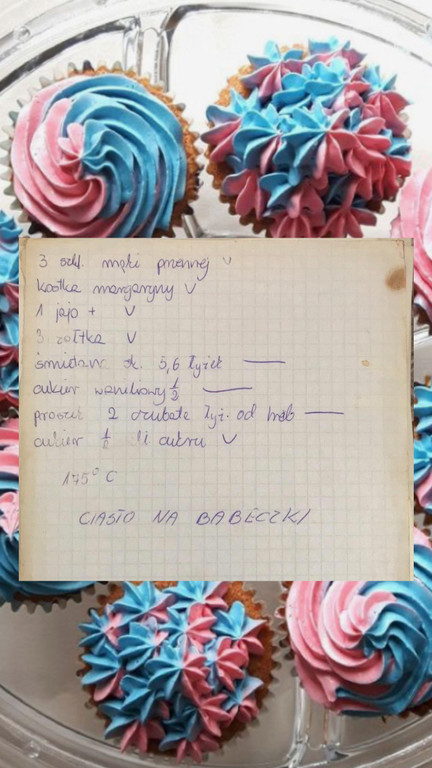 3 szkl. mąki pszennej v
kostka margaryny v
1 jajo + v
3 żółtka v
śmidana ok. 5,6 łyżek —
cukier waniliowy 1/2 —
proszek 2 czubate łyż. od herb —
cukier 1/2 cukru v
175° C
CIASTO NA BABECZKI